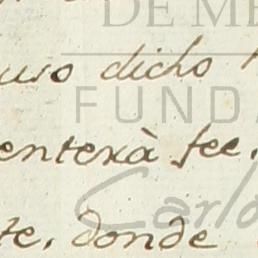 DE ME
uso dicho
FUNDA
enterà fee.
Carlo
te, donde